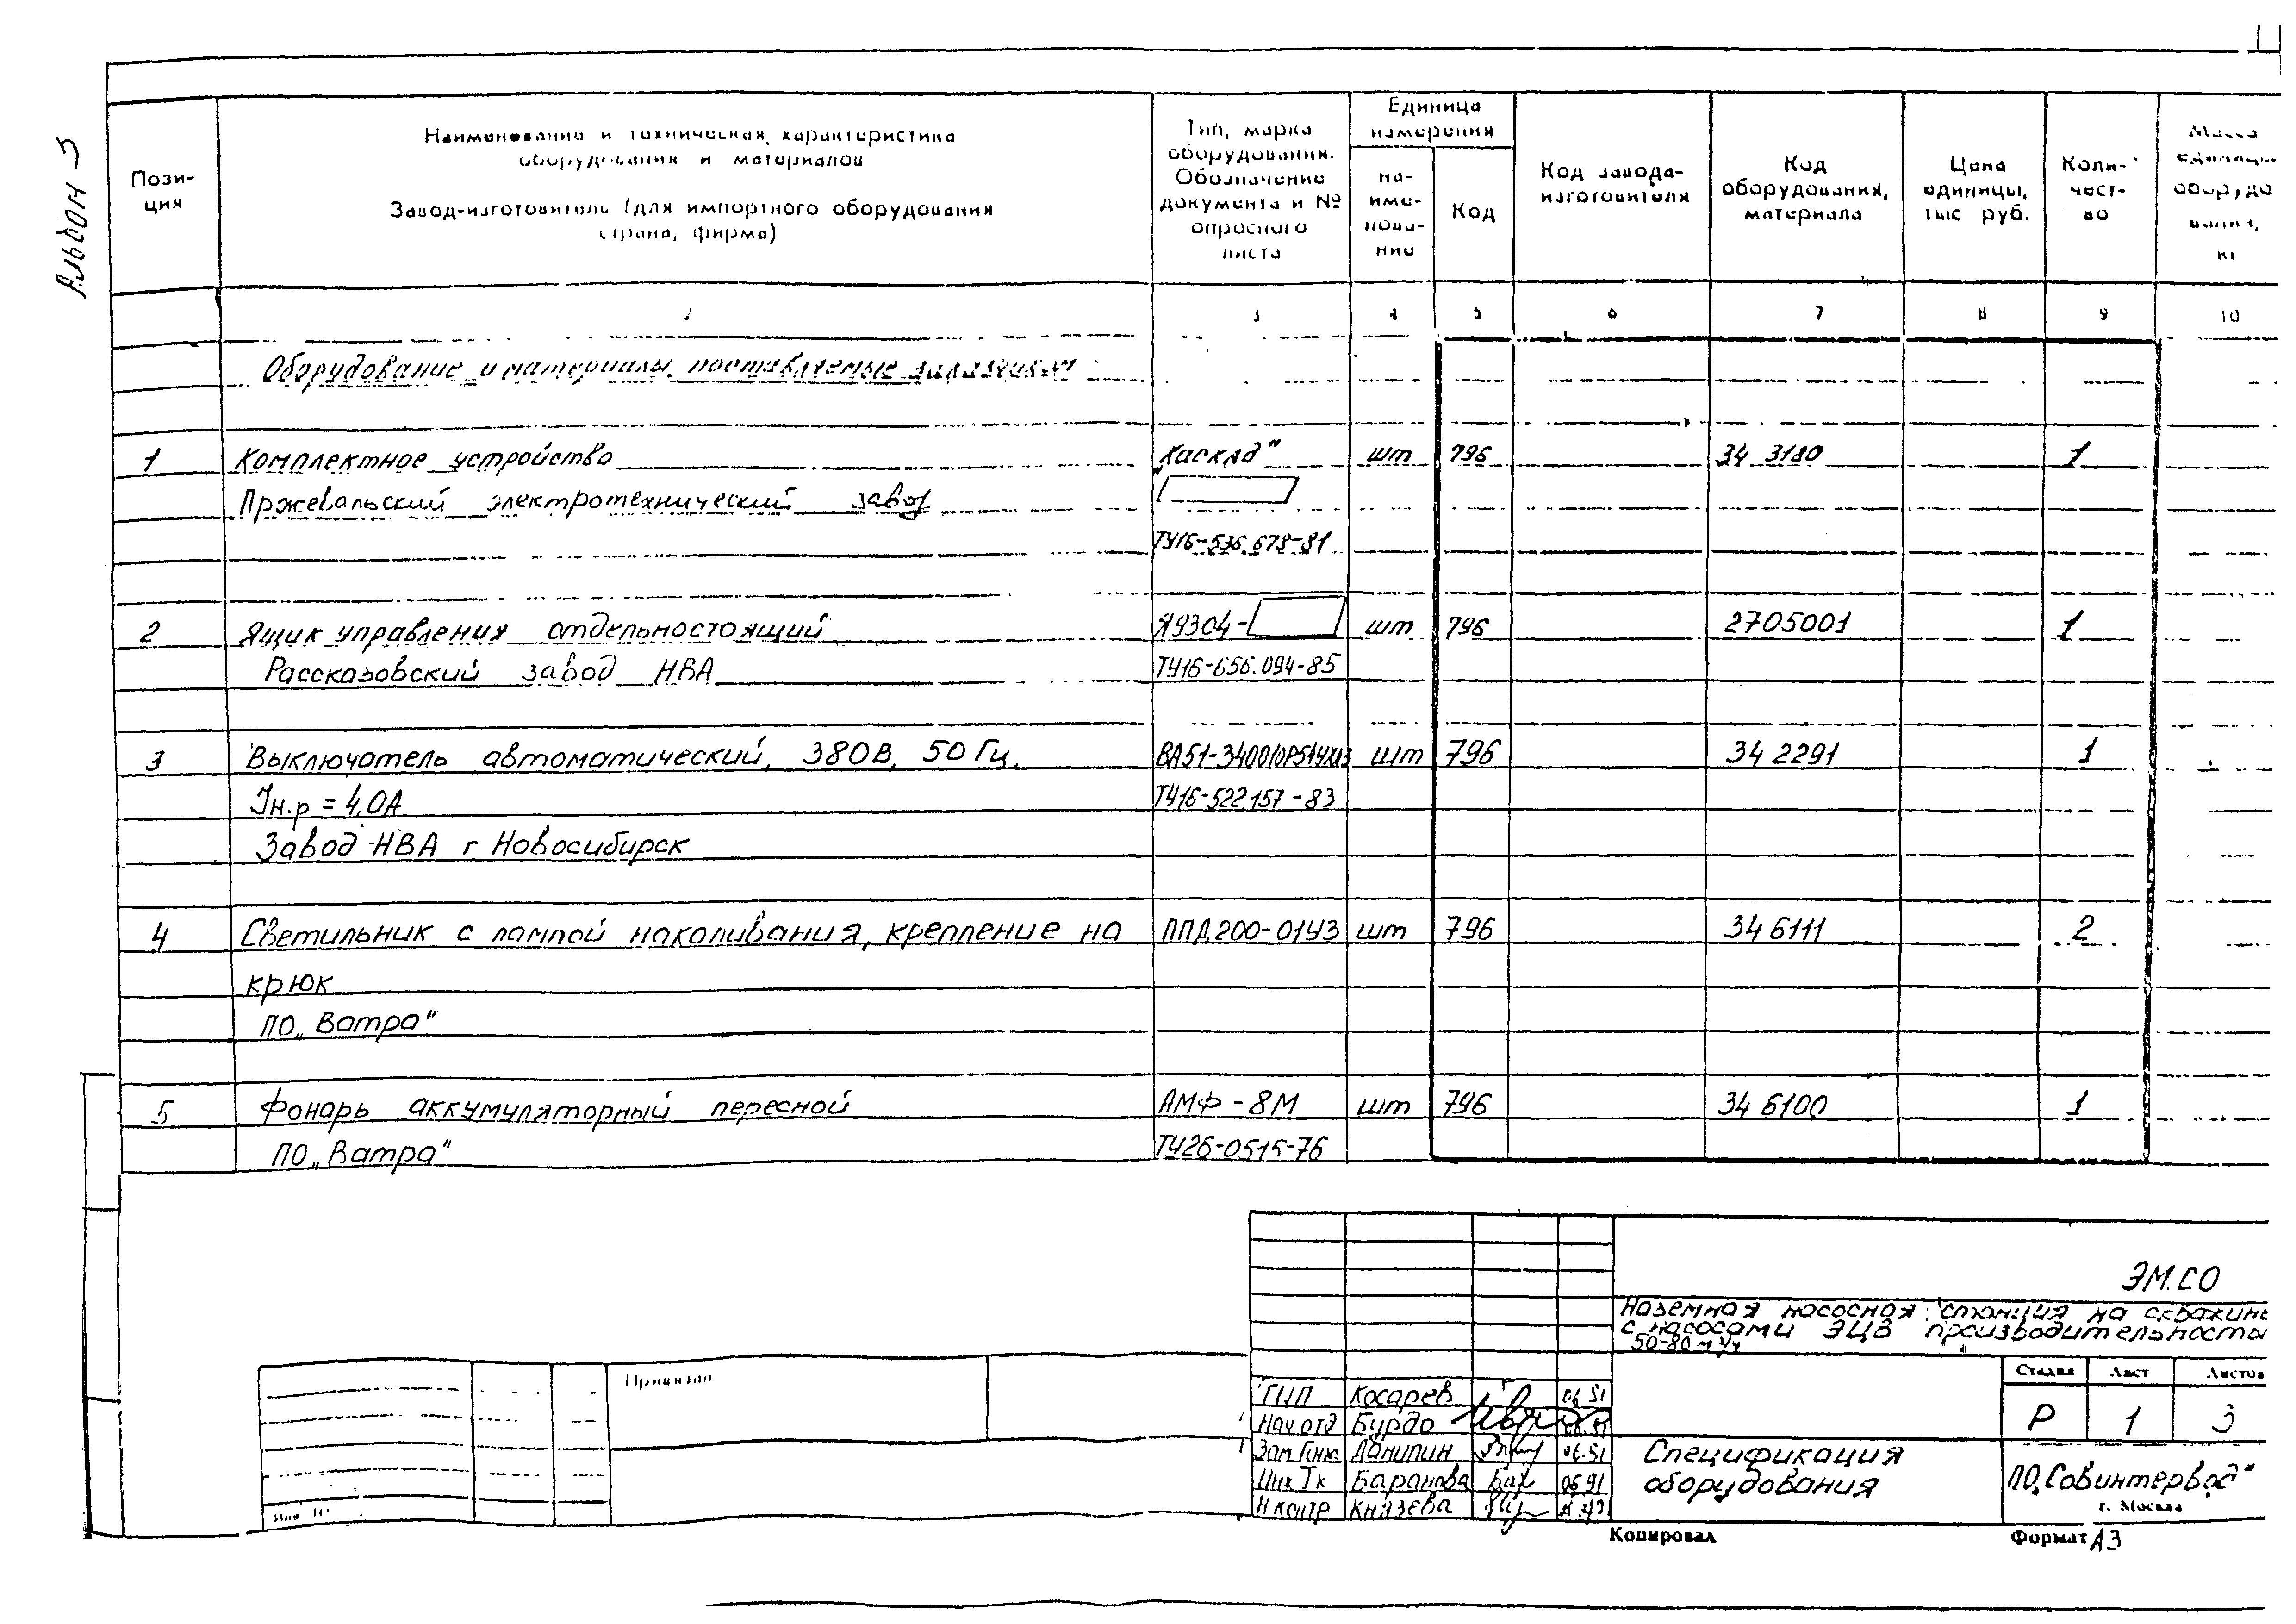 Альбом 3
Пози-
ция
Наименование и техническая характеристика
оборудования и материалов
Завод-изготовитель (для импортного оборудования
страна, фирма)
Тип, марка
оборудования.
Обозначение
документа и №
опросного
листа
Единица
измерения
на-
име-
нова-
ние
Код
Код завода-
изготовителя
Код
оборудования,
материала
Цена
единицы,
тыс руб.
Коли-
чест-
во
Масса
единицы
оборудо
вания,
кг
2 3 4 5 6 7 8 9 10
Оборудование и материалы, поставляемые заказчиком
1 Комплектное устройство „Каскад" шт 796 34 3180 1
Пржевальский электротехнический завод
ТУ16-536.678-81
2 Ящик управления отдельностоящий Я9304- шт 796 2705001 1
Рассказовский завод НВА ТУ16-656.094-85
3 Выключатель автоматический, 380В, 50Гц, ВА51-340010Р54УХЛ3 шт 796 34 2291 1
Iн.р = 4,0А ТУ16-522.157-83
Завод НВА г Новосибирск
4 Светильник с лампой накаливания, крепление на ППД200-01У3 шт 796 34 6111 2
крюк
ПО „Ватра"
5 Фонарь аккумуляторный пересной АМФ-8М шт 796 34 6100 1
ПО „Ватра" ТУ26-0515-76
ЭМ.СО
Наземная насосная станция на скважине
с насосами ЭЦВ производительностью
50-80 м³/ч
Привязан
Инв №
ГИП Косарев 06.91
Нач отд Бурдо 06.91
Зам Гл.инж Данилин 06.91
Инж Iк Баранова 06.91
Н контр Князева
Стадия Лист Листов
Р 1 3
Спецификация
оборудования
ПО „Совинтервод"
г. Москва
Копировал
Формат А3